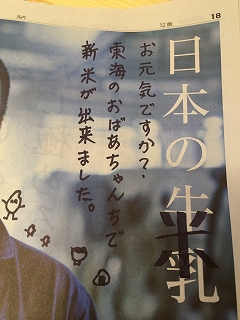 18
日本の牛乳
お元気ですか?
東海のおばあちゃんちで
新米が出来ました。